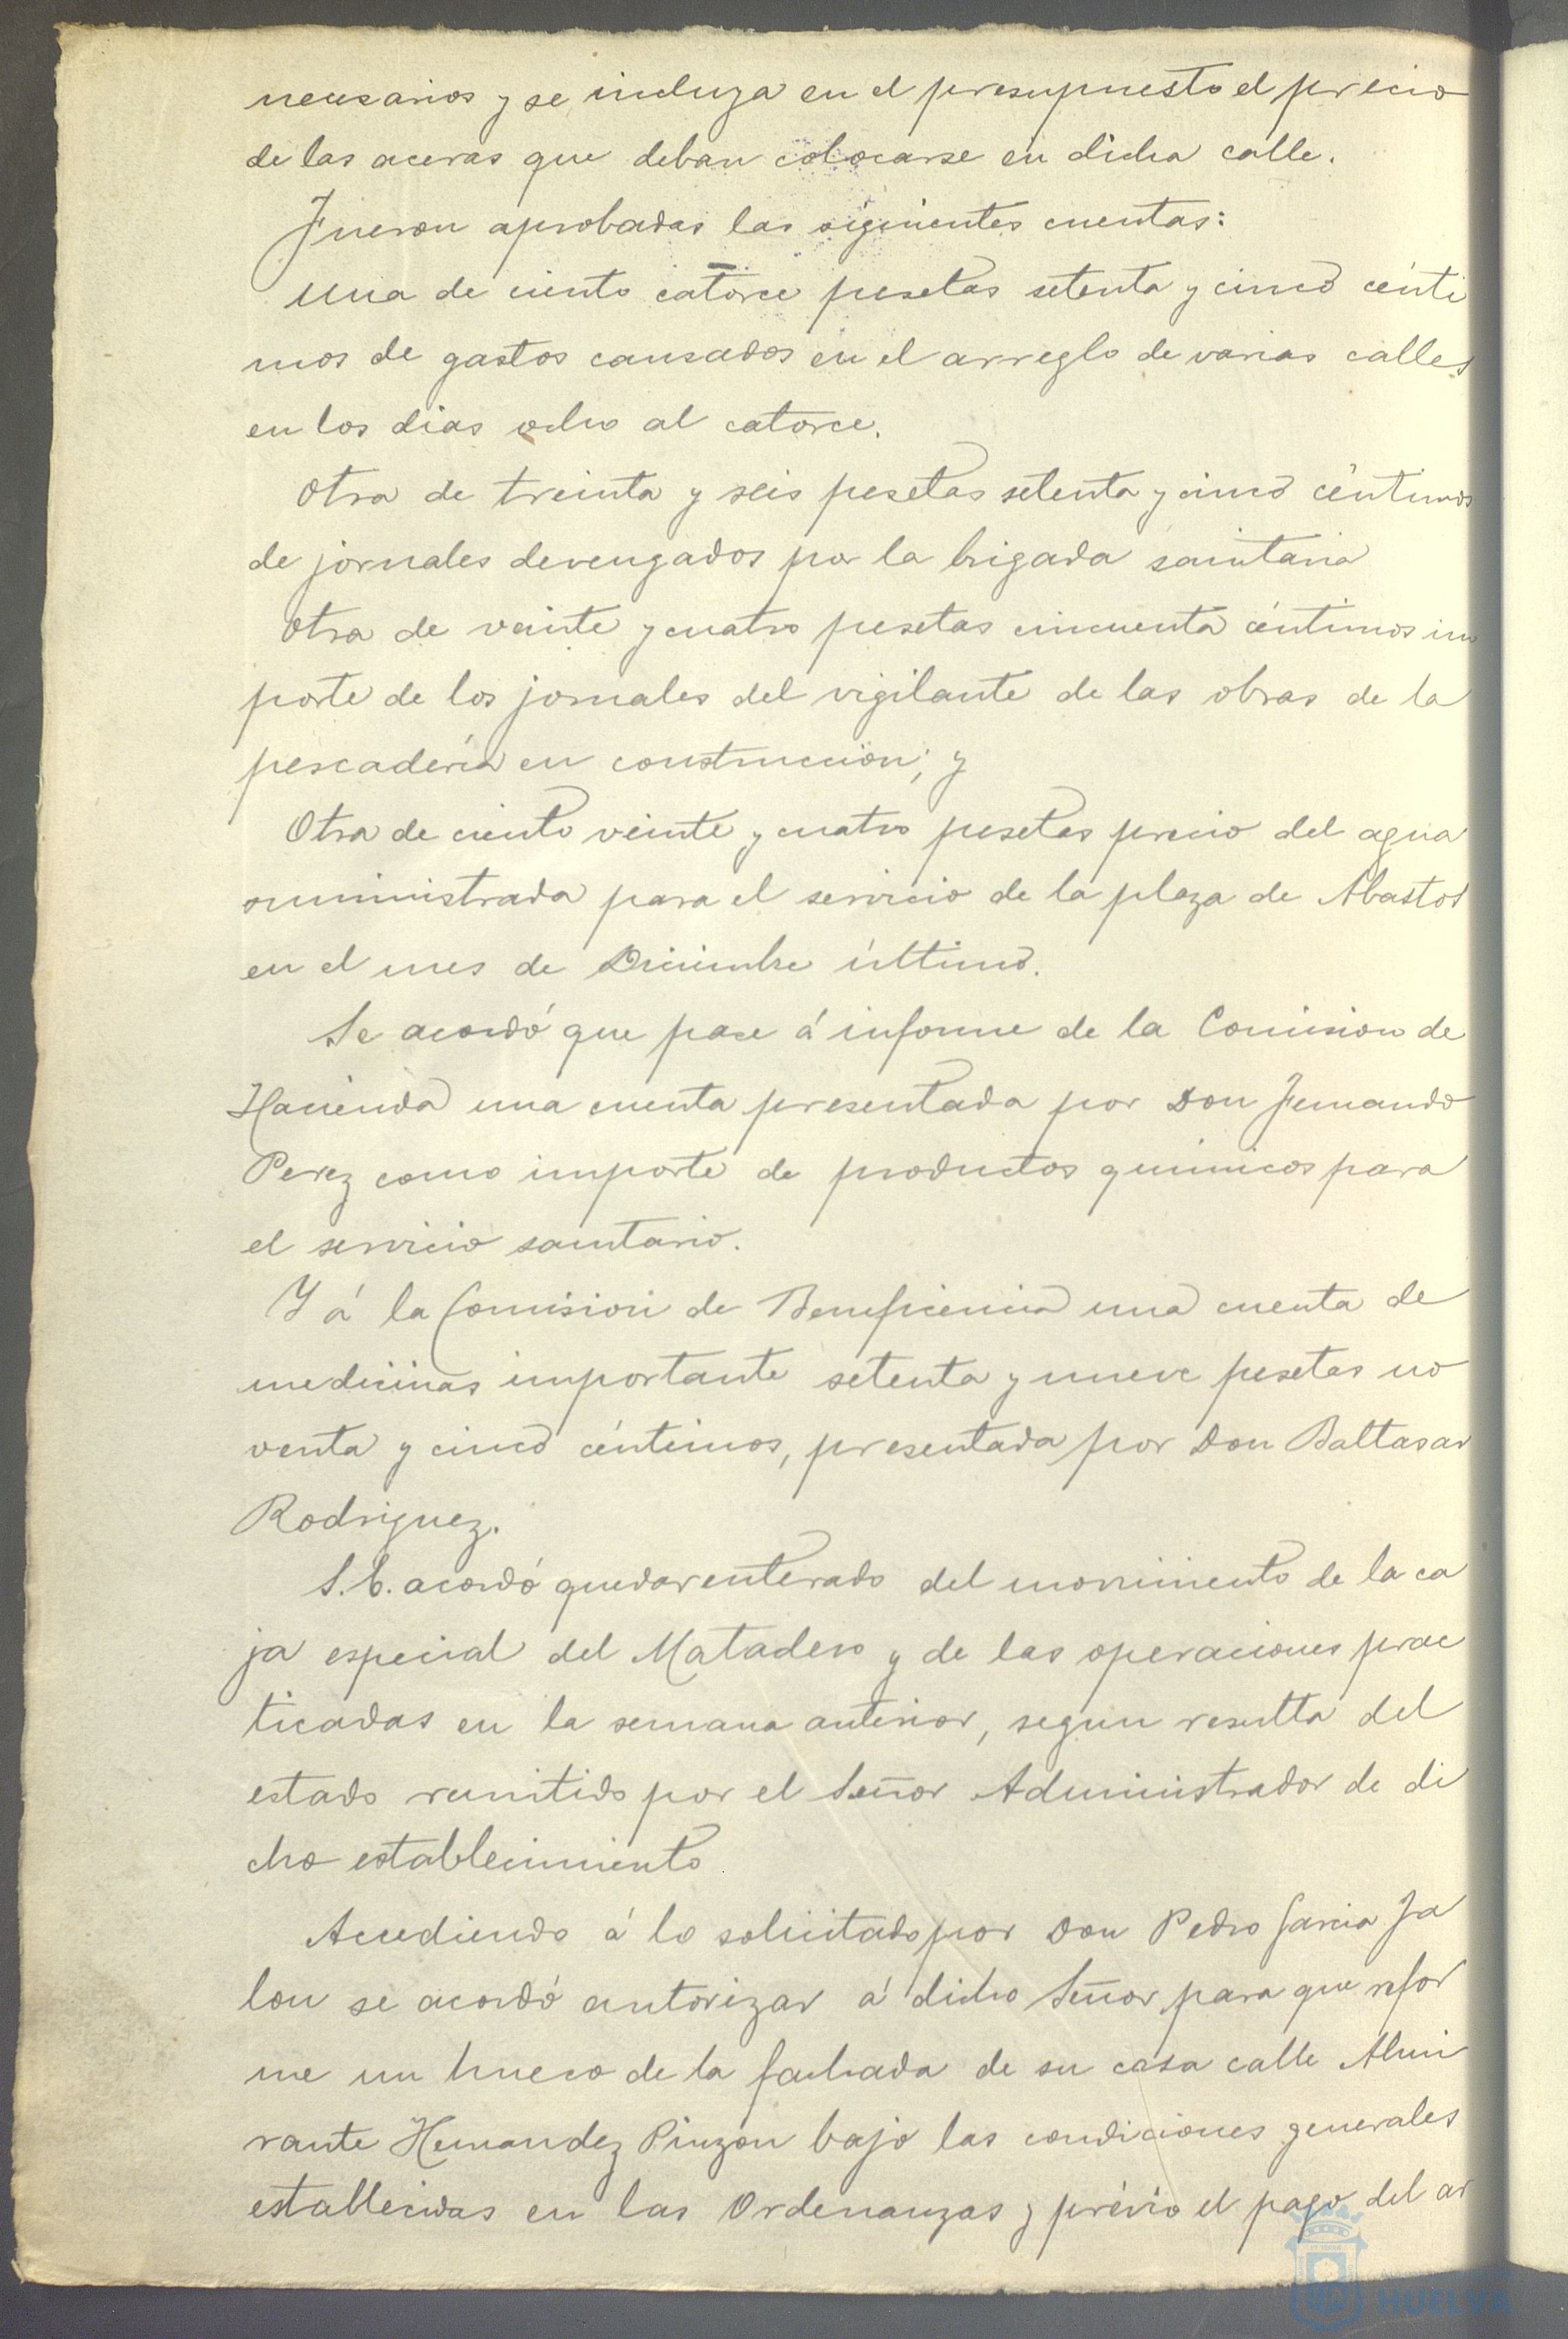 necesarios y se incluya en el presupuesto el precio
de las aceras que deban colocarse en dicha calle.
Fueron aprobadas las siguientes cuentas:
Una de ciento catorce pesetas setenta y cinco cénti
mos de gastos causados en el arreglo de varias calles
en los dias ocho al catorce.
Otra de treinta y seis pesetas setenta y cinco céntimos
de jornales devengados por la brigada sanitaria
Otra de veinte y cuatro pesetas cincuenta céntimos im
porte de los jornales del vigilante de las obras de la
pescadería en construccion; y
Otra de ciento veinte y cuatro pesetas precio del agua
suministrada para el servicio de la plaza de Abastos
en el mes de Diciembre último.
Se acordó que pase á informe de la Comision de
Hacienda una cuenta presentada por Don Fernando
Perez como importe de productos quimicos para
el servicio sanitario.
Y á la Comision de Beneficencia una cuenta de
medicinas importante setenta y nueve pesetas no
venta y cinco céntimos, presentada por Don Baltasar
Rodriguez.
S. E. acordó quedar enterado del movimiento de la ca
ja especial del Matadero y de las operaciones prac
ticadas en la semana anterior, segun resulta del
estado remitido por el Señor Administrador de di
cho establecimiento
Accediendo á lo solicitado por Don Pedro Garcia Ja
lon se acordó autorizar á dicho Señor para que refor
me un hueco de la fachada de su casa calle Almi
rante Hernandez Pinzon bajo las condiciones generales
establecidas en las Ordenanzas y prévio el pago del ar
HUELVA